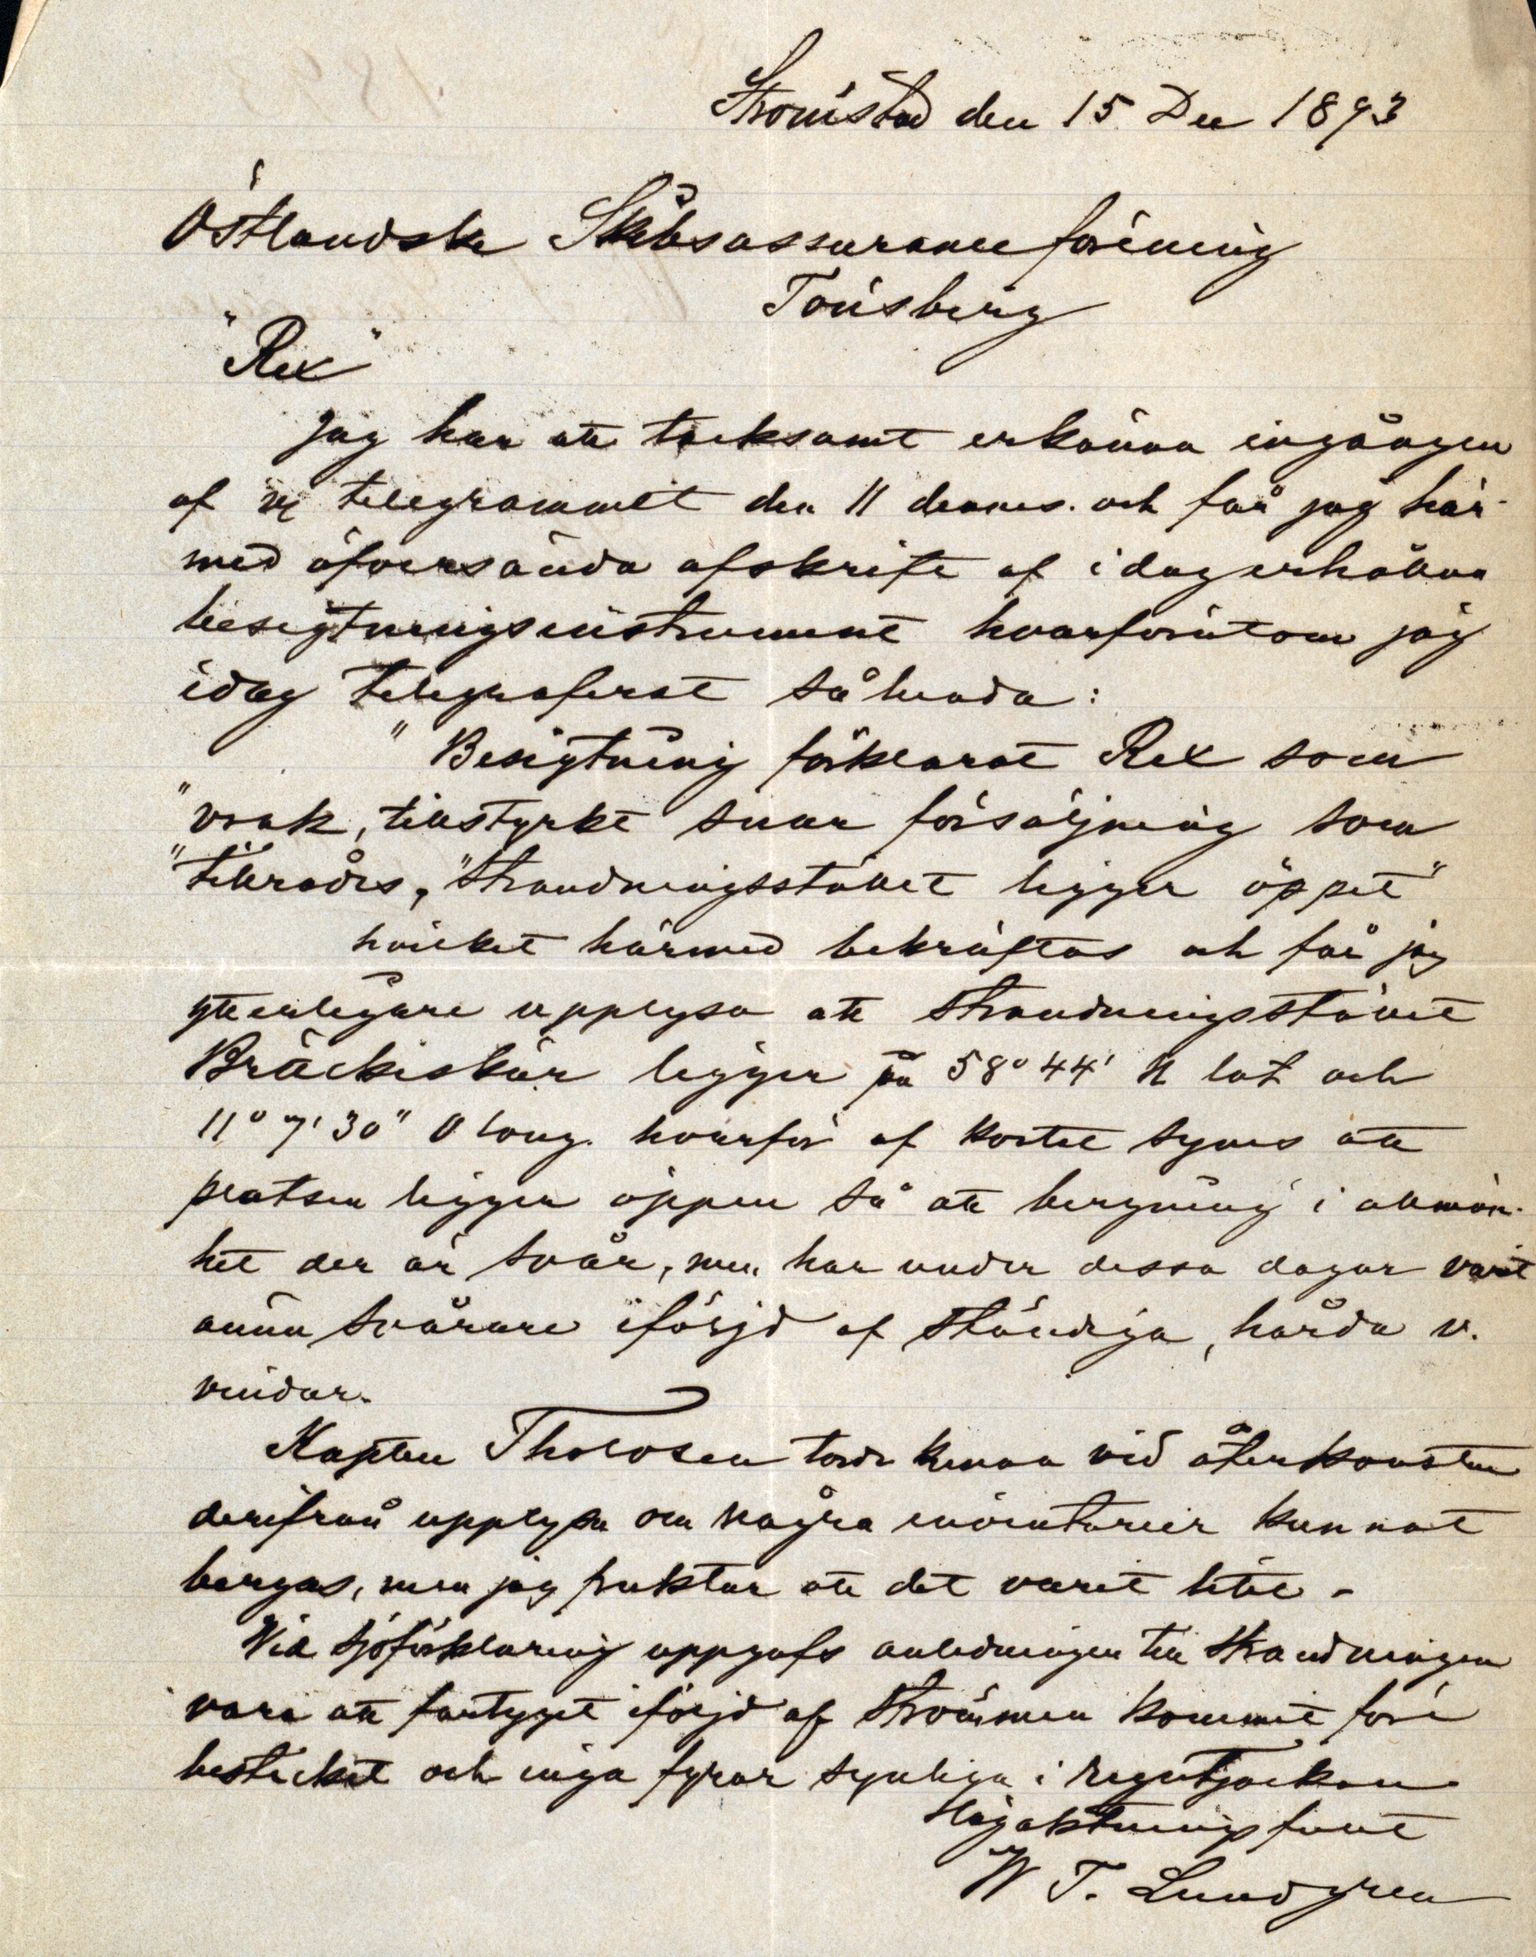 Strömstad den 15 Dec 1893
Östlandske Skibsassuranceforening
Tönsberg
"Rex"
Jag har att tacksamt erkänna ingången
af telegrammet den 11 dennes. och får jag här-
med öfversända afskrift af idag erhållna
besigtningsinstrument hvarförutom jag
idag telegraferat sålunda:
"Besigtning förklarat Rex som
"vrak, tillstyrkt snar försäljning som
"tillrådes, "strandningsstället ligger öppet"
hvilket härmed bekräftas och får jag
ytterligare upplysa att strandningsstället
Bräckeskär ligger på 58° 44' N lat och
11° 7' 30" O long. hvarför af kortet synes att
platsen ligger öppen så att bergning i allmän-
het der är svår, men har under dessa dagar varit
ännu svårare iföljd af ständiga, hårda v.
vindar.
Kapten Tholvsen torde kunna vid återkomsten
derifrån upplysa om några inventarier kunnat
bergas, men jag fruktar att det varit litet -
Vid sjöförklaring uppgafs anledningen till strandningen
vara att fartyget iföljd af strömmen kommit för i
besticket och inga fyrar synliga i regntjockan.
Högaktningsfullt
W T. Lundgren